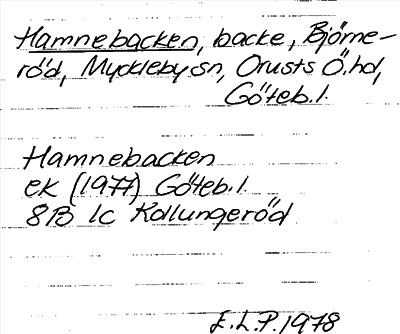 Hamnebacken, backe, Björne-
röd, Myckleby sn, Orusts Ö. hd,
Göteb. l.
Hamnebacken
ek (1977) Göteb. l.
8B 1c Kollungeröd
E.L.P. 1978